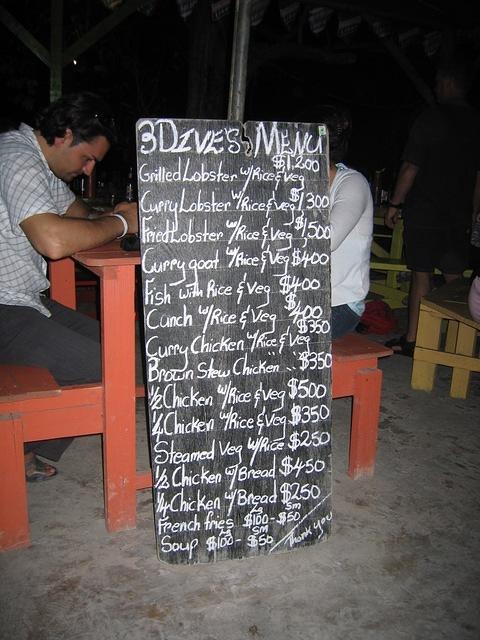 3 Dive's Menu
Grilled Lobster w/ Rice & Veg $1,200
Curry Lobster w/ Rice & Veg $1,300
Fried Lobster w/ Rice & Veg $1,500
Curry goat w/ Rice & Veg $400
Fish with Rice & Veg $400
Cunch w/ Rice & Veg $400
Curry Chicken w/ Rice & Veg $350
Brown Stew Chicken " " $350
1/2 Chicken w/ Rice & Veg $500
1/4 Chicken w/ Rice & Veg $350
Steamed Veg w/ Rice $250
1/2 Chicken w/ Bread $450
1/4 Chicken w/ Bread $250
French fries Lg $100 - Sm $50
Soup Lg $100 - Sm $50
Thank You